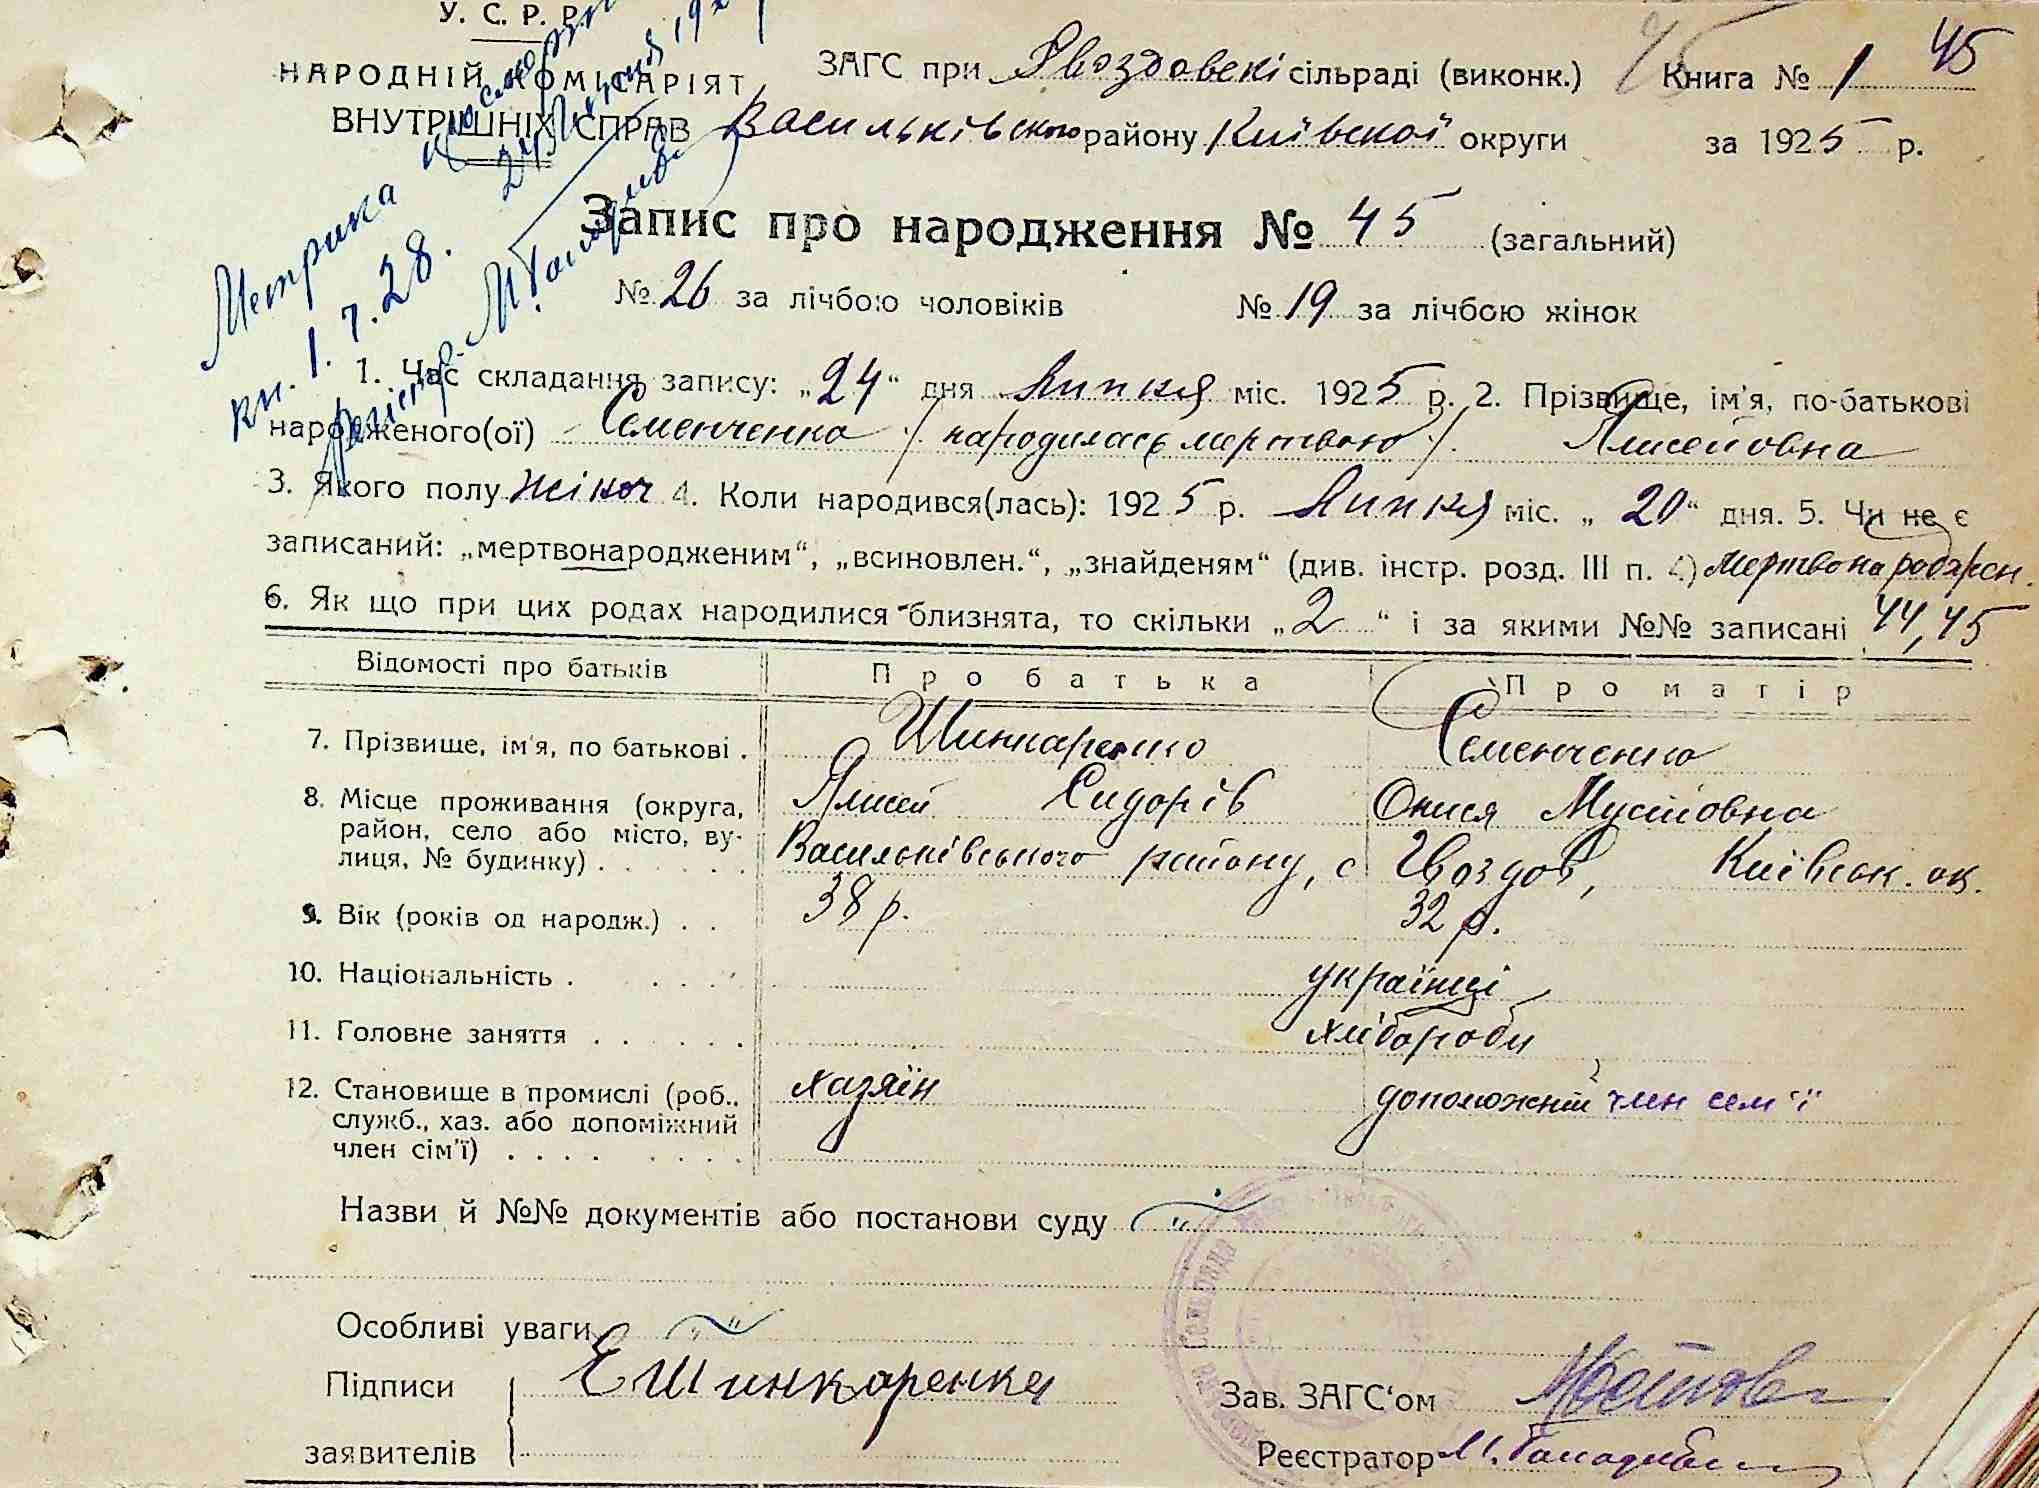 У. С. Р. Р.
НАРОДНІЙ КОМІСАРІЯТ
ВНУТРІШНІХ СПРАВ
ЗАГС при Гвоздовскі сільраді (виконк.) Книга № 1 45
Васильківского району Київської округи за 1925 р.
Метрика
1.7.28.
Запис про народження № 45 (загальний)
№ 26 за лічбою чоловіків № 19 за лічбою жінок
1. Час складання запису: „24“ дня Липня міс. 1925 р. 2. Прізвище, ім'я, по-батькові
народженого(ої) Семенченко /народилась мертвою/. Алисейовна
3. Якого полу жіноч 4. Коли народився(лась): 1925 р. Липня міс. „20“ дня. 5. Чи не є
записаний: „мертвонародженим“, „всиновлен.“, „знайденям“ (див. інстр. розд. III п. 4) мертвонароджен.
6. Як що при цих родах народилися близнята, то скільки „2“ і за якими №№ записані 44, 45
Відомості про батьків Про батька Про матір
7. Прізвище, ім'я, по батькові . Шинкаренко Семенченко
Алисей Сидорів Онися Мусіовна
8. Місце проживання (округа, район, село або місто, вулиця, № будинку) . Васильківського району, с Гвоздов, Київськ. ок.
9. Вік (років од народж.) . . 38 р. 32 р.
10. Національність . українці
11. Головне заняття . . . хлібороби
12. Становище в промислі (роб., служб., хаз. або допоміжний член сім'ї) . . . . хазяїн допоможній член сем'ї
Назви й №№ документів або постанови суду „
Особливі уваги „
Підписи Е Шинкаренка
заявителів
Зав. ЗАГС‘ом
Реєстратор